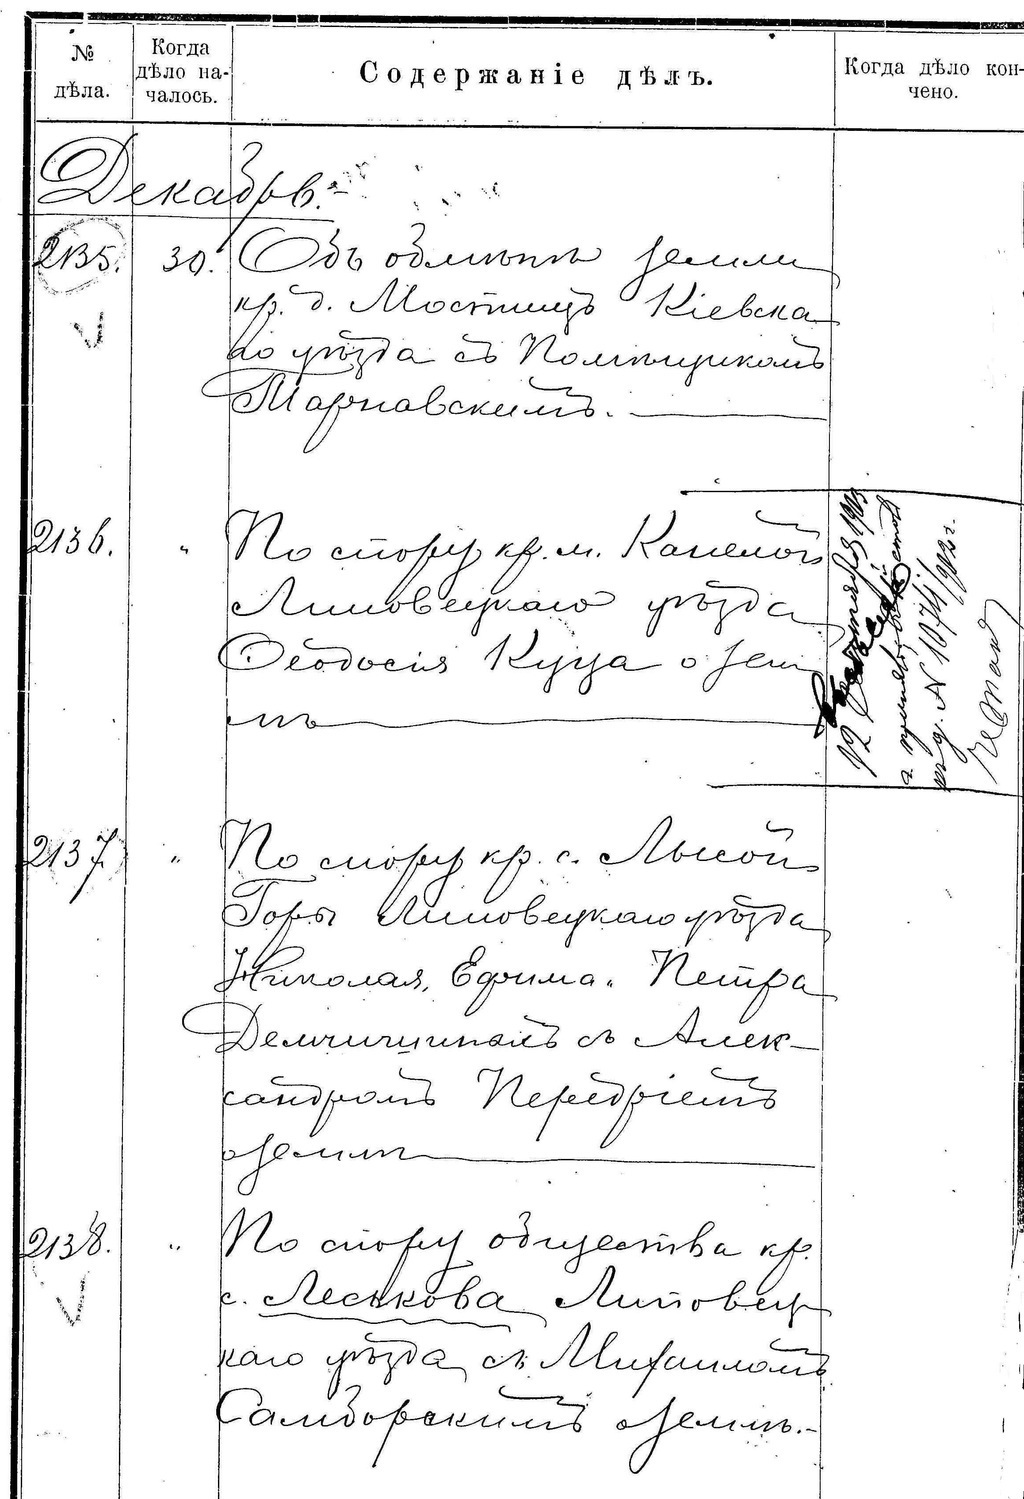 №
дѣла.
Когда
дѣло на-
чалось.
Содержаніе дѣлъ.
Когда дѣло кон-
чено.
Декабрь.
2135. 30. Объ обмѣнѣ земли
кр. д. Мостищъ Кіевска
го уѣзда съ Помѣщикомъ
Тарнавскимъ.
2136. " По спору кр. м. Канелой
Липовецкаго уѣзда
Ѳеодосія Куца о зем
лѣ
12 1903
№ 1074/903 г.
2137 " По спору кр. с. Лысой
Горы Липовецкаго уѣзда
Николая, Ефима и Петра
съ Алек-
сандромъ Передріемъ
о землѣ
2138. " По спору общества кр.
с. Леськова Липовец
каго уѣзда съ Михаиломъ
Самборскимъ о землѣ.-